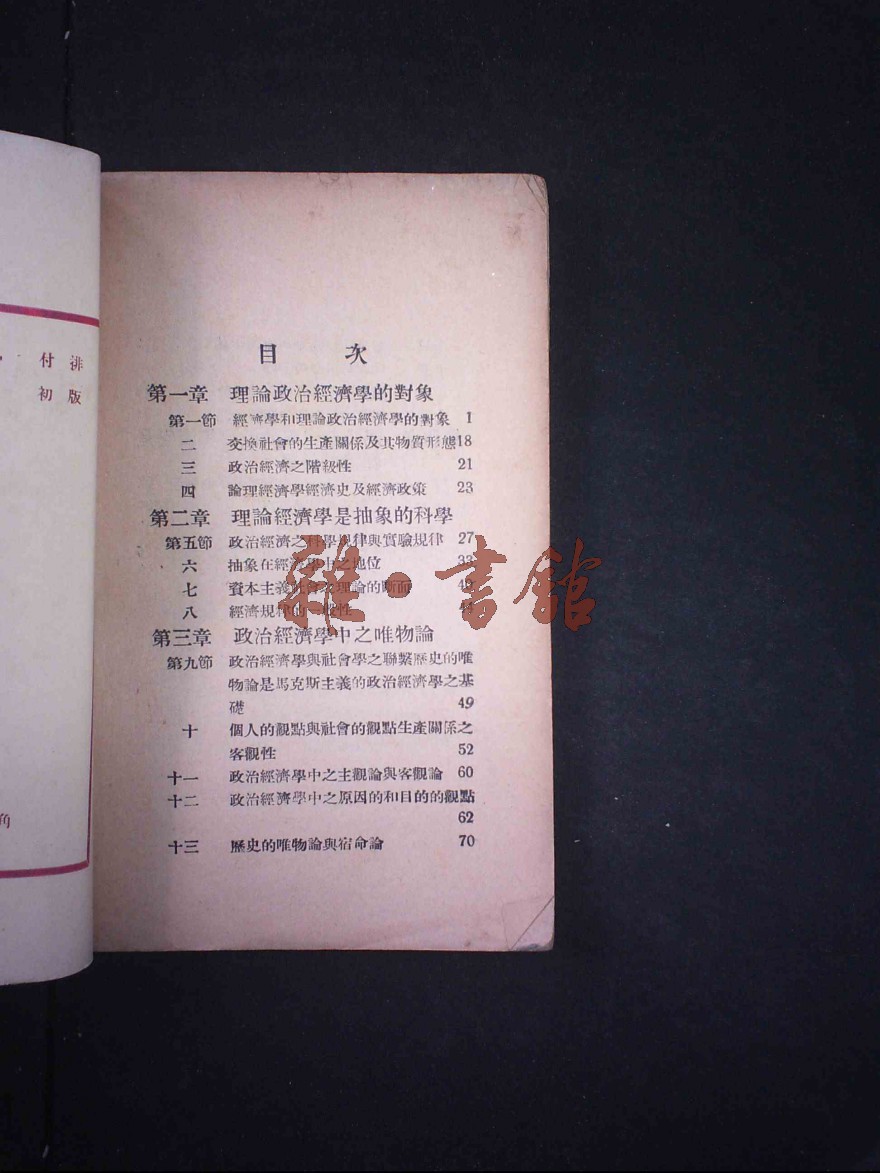 付排
初版
角
目次
第一章 理論政治經濟學的對象
第一節 經濟學和理論政治經濟學的對象 1
二 交換社會的生產關係及其物質形態18
三 政治經濟之階級性 21
四 論理經濟學經濟史及經濟政策 23
第二章 理論經濟學是抽象的科學
第五節 政治經濟之科學規律與實驗規律 27
六 抽象在經濟學中之地位 33
七 資本主義社會及理論的斷面
八 經濟規律的一般性 44
第三章 政治經濟學中之唯物論
第九節 政治經濟學與社會學之聯繫歷史的唯
物論是馬克斯主義的政治經濟學之基
礎 49
十 個人的觀點與社會的觀點生產關係之
客觀性 52
十一 政治經濟學中之主觀論與客觀論 60
十二 政治經濟學中之原因的和目的的觀點
62
十三 歷史的唯物論與宿命論 70
雜·書館